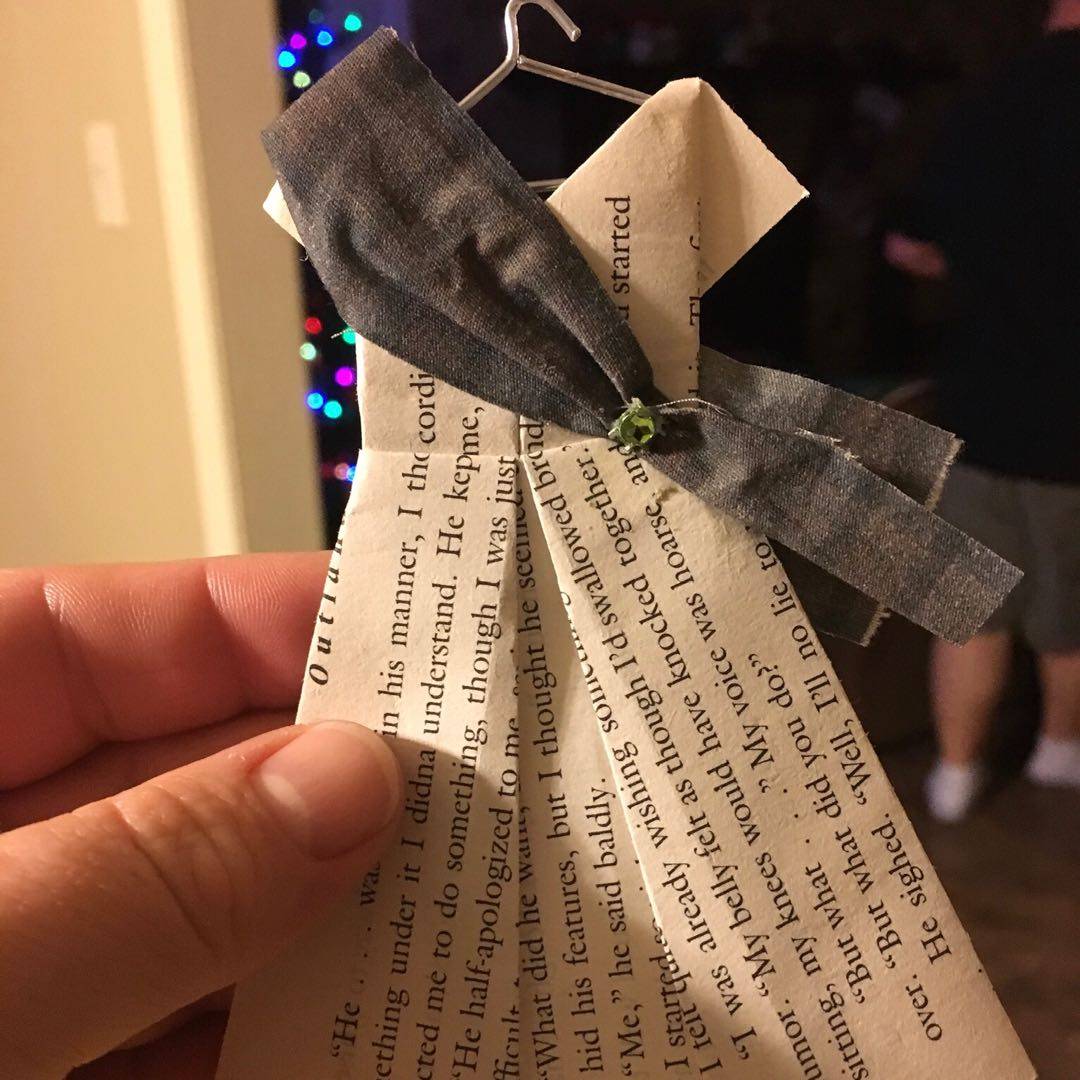 Outlan
"He . . . was
in his manner, I tho
cordi
ething under it I didna understand. He kep
me,
cted me to do something, though I was just
"He half-apologized to me
"What did he want, but I thought he seemed
hid his features, but I thought he
brold
"Me," he said baldly.
I started
I felt
"I was already wishing
umor. "My belly felt as though I'd swallowed
sitting, my knees would have knocked together.
"But what . . ." My voice was hoarse, and
over. "But what did you do?"
He sighed. "Well, I'll no lie to
started